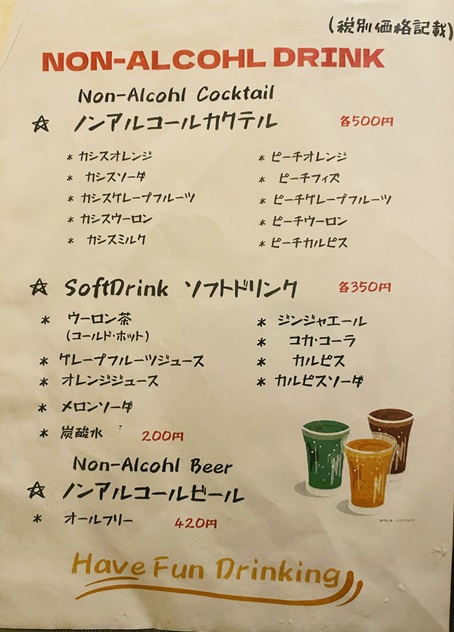 (税別価格記載)
NON-ALCOHL DRINK
Non-Alcohl Cocktail
☆ ノンアルコールカクテル 各500円
* カシスオレンジ
* カシスソーダ
* カシスグレープフルーツ
* カシスウーロン
* カシスミルク
* ピーチオレンジ
* ピーチフィズ
* ピーチグレープフルーツ
* ピーチウーロン
* ピーチカルピス
☆ SoftDrink ソフトドリンク 各350円
* ウーロン茶
(コールド・ホット)
* グレープフルーツジュース
* オレンジジュース
* メロンソーダ
* 炭酸水 200円
* ジンジャエール
* コカ・コーラ
* カルピス
* カルピスソーダ
Non-Alcohl Beer
☆ ノンアルコールビール
* オールフリー 420円
Have Fun Drinking